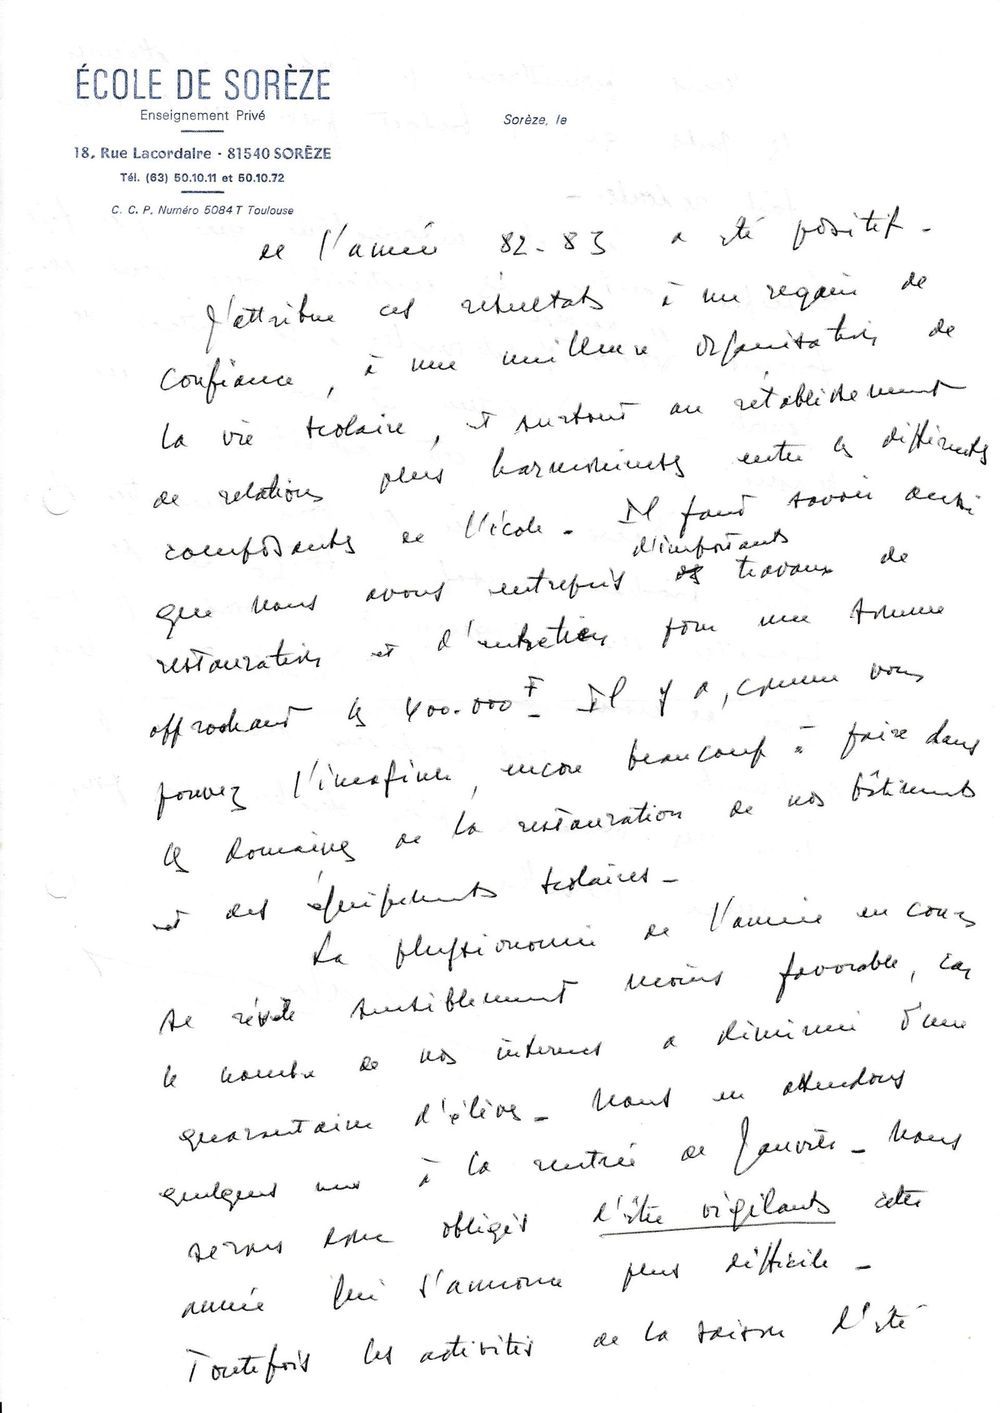 ÉCOLE DE SORÈZE
Enseignement Privé
18, Rue Lacordaire - 81540 SORÈZE
Tél. (63) 50.10.11 et 50.10.72
C. C. P. Numéro 5084 T Toulouse
Sorèze, le
de l'année 82-83 a été positif -
J'attribue ces résultats à un regain de
confiance, à une meilleure organisation de
la vie scolaire, et surtout au rétablissement
de relations plus harmonieuses entre les différents
composants de l'école - Il faut savoir aussi
d'importants
que nous avons entrepris des travaux de
restauration et d'entretien pour une somme
approchant les 400.000 F - Il y a, comme vous
pouvez l'imaginer, encore beaucoup à faire dans
les domaines de la restauration de nos bâtiments
et des équipements scolaires -
La physionomie de l'année en cours
se révèle sensiblement moins favorable, car
le nombre de nos internes a diminué d'une
quarantaine d'élèves - Nous en attendons
quelques uns à la rentrée de Janvier - Nous
serons donc obligés d'être vigilants cette
année qui s'annonce plus difficile -
Toutefois les activités de la saison d'été